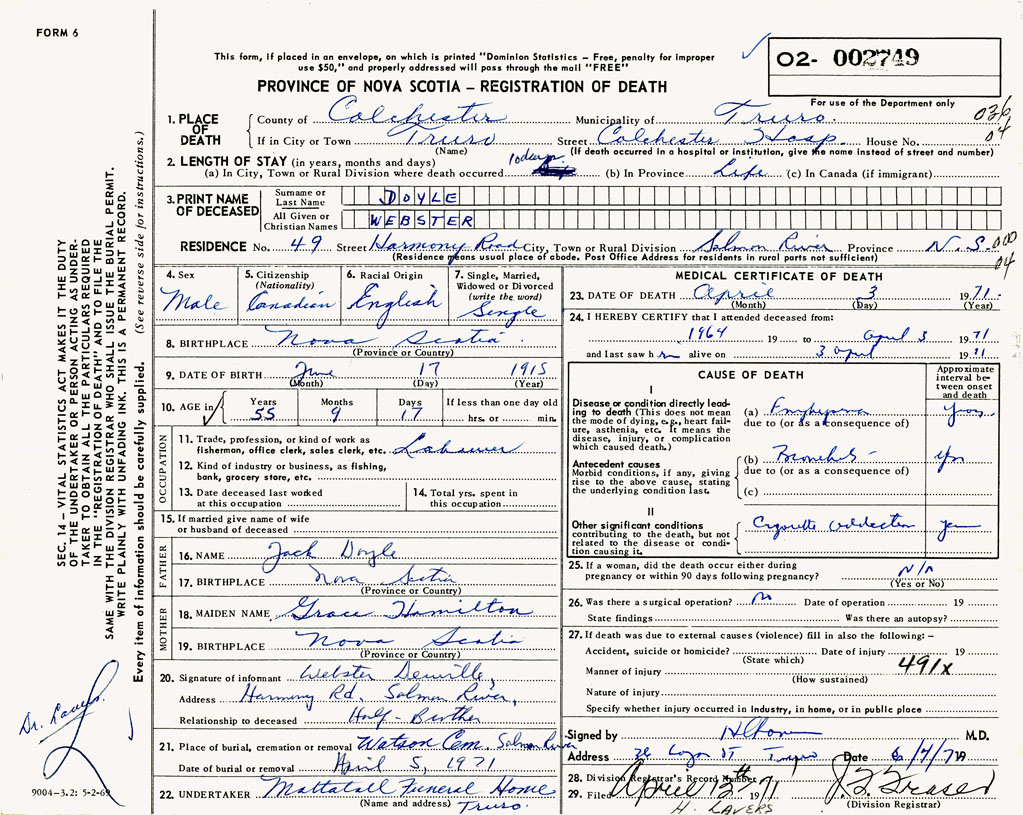 FORM 6
This form, if placed in an envelope, on which is printed "Dominion Statistics – Free, penalty for improper
use $50," and properly addressed will pass through the mail "FREE"
02- 002749
PROVINCE OF NOVA SCOTIA – REGISTRATION OF DEATH
For use of the Department only
036
04
1. PLACE OF DEATH County of Colchester Municipality of Truro
If in City or Town Truro Street Colchester Hosp. House No.
(Name) (If death occurred in a hospital or institution, give the name instead of street and number)
2. LENGTH OF STAY (in years, months and days)
(a) In City, Town or Rural Division where death occurred 10 days (b) In Province Life (c) In Canada (if immigrant)
3. PRINT NAME OF DECEASED Surname or Last Name DOYLE
All Given or Christian Names WEBSTER
RESIDENCE No. 49 Street Harmony Road City, Town or Rural Division Salmon River Province N.S. 000
04
(Residence means usual place of abode. Post Office Address for residents in rural parts not sufficient)
4. Sex Male
5. Citizenship (Nationality) Canadian
6. Racial Origin English
7. Single, Married, Widowed or Divorced (write the word) Single
8. BIRTHPLACE Nova Scotia
(Province or Country)
9. DATE OF BIRTH June 17 1915
(Month) (Day) (Year)
10. AGE in Years 55 Months 9 Days 17 If less than one day old hrs. or min.
OCCUPATION
11. Trade, profession, or kind of work as fisherman, office clerk, sales clerk, etc. Labourer
12. Kind of industry or business, as fishing, bank, grocery store, etc.
13. Date deceased last worked at this occupation
14. Total yrs. spent in this occupation
15. If married give name of wife or husband of deceased
FATHER
16. NAME Jack Doyle
17. BIRTHPLACE Nova Scotia
(Province or Country)
MOTHER
18. MAIDEN NAME Grace Hamilton
19. BIRTHPLACE Nova Scotia
(Province or Country)
20. Signature of informant Webster
Address Harmony Rd, Salmon River,
Relationship to deceased Half-Brother
21. Place of burial, cremation or removal Watson Cem. Salmon River
Date of burial or removal April 5, 1971
22. UNDERTAKER Mattatall Funeral Home
(Name and address) Truro.
MEDICAL CERTIFICATE OF DEATH
23. DATE OF DEATH April 3 1971
(Month) (Day) (Year)
24. I HEREBY CERTIFY that I attended deceased from:
1964 19 to April 3 1971
and last saw h im alive on 3 April 1971
CAUSE OF DEATH
Approximate interval between onset and death
I
Disease or condition directly leading to death (This does not mean the mode of dying, e.g., heart failure, asthenia, etc. It means the disease, injury, or complication which caused death.)
(a) Emphysema yrs
due to (or as a consequence of)
Antecedent causes
Morbid conditions, if any, giving rise to the above cause, stating the underlying condition last.
(b) Bronchitis yrs
due to (or as a consequence of)
(c)
II
Other significant conditions contributing to the death, but not related to the disease or condition causing it.
Cigarette addiction
25. If a woman, did the death occur either during pregnancy or within 90 days following pregnancy? N/A
(Yes or No)
26. Was there a surgical operation? No Date of operation 19
State findings Was there an autopsy?
27. If death was due to external causes (violence) fill in also the following: –
Accident, suicide or homicide? Date of injury 19
(State which)
Manner of injury 491X
(How sustained)
Nature of injury
Specify whether injury occurred in industry, in home, or in public place
Signed by M.D.
Address Truro Date 6/4/71
28. Division Registrar's Record Number
29. Filed April 12th 1971 J. F. Fraser
H. LAVERS (Division Registrar)
SEC. 14 – VITAL STATISTICS ACT MAKES IT THE DUTY
OF THE UNDERTAKER OR PERSON ACTING AS UNDERTAKER
TO OBTAIN ALL THE PARTICULARS REQUIRED
IN THE "REGISTRATION OF DEATH" AND TO FILE THE
SAME WITH THE DIVISION REGISTRAR WHO SHALL ISSUE THE BURIAL PERMIT.
WRITE PLAINLY WITH UNFADING INK. THIS IS A PERMANENT RECORD.
Every item of information should be carefully supplied. (See reverse side for instructions.)
Dr. Lavers
9004-3.2: 5-2-69